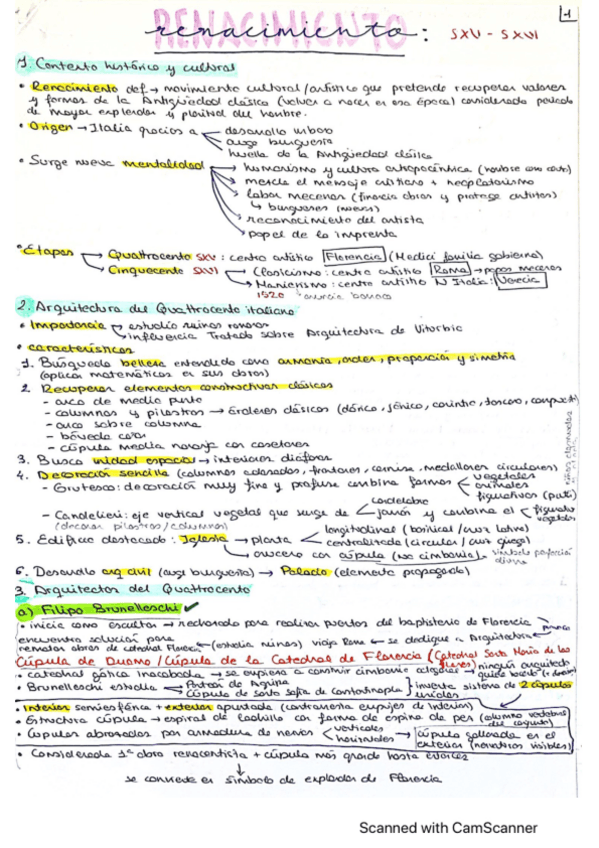 RENACIMIENTO
renacimiento: SXV - SXVI
1
1. Contexto histórico y cultural
• Renacimiento def → movimiento cultural/artístico que pretende recuperar valores
y formas de la Antigüedad clásica (volver a nacer en esa época) considerada periodo
de mayor esplendor y plenitud del hombre.
• Origen → Italia gracias a desarrollo urbano
auge burguesía
huella de la Antigüedad clásica
• Surge nueva mentalidad → humanismo y cultura antropocéntrica (hombre como centro)
→ mezcla el mensaje cristiano + neoplatonismo
→ labor mecenas (financia obras y protege artistas)
↳ burgueses (nuevos)
→ reconocimiento del artista
→ papel de la imprenta
• Etapas → Quattrocento SXV: centro artístico Florencia (Medici familia gobierna)
→ Cinquecento SXVI → Clasicismo: centro artístico Roma → papas mecenas
→ Manierismo: centro artístico N Italia: Venecia
1520 anuncia barroco
2. Arquitectura del Quattrocento italiano
• Importancia → estudio ruinas romanas
→ influencia Tratado sobre Arquitectura de Vitrubio
• características
1. Búsqueda belleza entendida como armonía, orden, proporción y simetría
(aplican matemáticas en sus obras)
2. Recuperar elementos constructivos clásicos
- arco de medio punto
- columnas y pilastras → órdenes clásicos (dórico, jónico, corintio, toscano, compuesto)
- arco sobre columna
- bóveda cañón
- cúpula media naranja con casetones
3. Busca unidad espacio → interiores diáfanos
4. Decoración sencilla (columnas adosadas, frontones, cornisa, medallones circulares)
- Grutesco: decoración muy fina y profusa combina formas vegetales
animales
figurativas (putti)
niños desnudos
- Candelieri: eje vertical vegetal que surge de candelabro
jarrón y combina el figurativo
vegetales
(decorar pilastras/columnas)
5. Edificio destacado: Iglesia → planta longitudinal (basilical/cruz latina)
centralizada (circular/cruz griega)
→ crucero con cúpula (no cimborrio) símbolo perfección
divina
6. Desarrollo arq civil (auge burguesía) → Palacio (elemento propaganda)
3. Arquitectos del Quattrocento
a) Filipo Brunelleschi ✓
• inicia como escultor → rechazado para realizar puertas del baptisterio de Florencia
encuentra solución para
rematar obras de catedral Florencia ← (estudia ruinas) viaja Roma ← se dedique a Arquitectura
Cúpula de Duomo / Cúpula de la Catedral de Florencia (Catedral Santa María de las
flores)
• catedral gótica inacabada → se empieza a construir cimborrio octogonal → ningún arquitecto
• Brunelleschi estudia Panteón de Agripa
Cúpula de Santa Sofía de Constantinopla
inventa sistema de 2 cúpulas
unidas
• Interior semiesférica + exterior apuntada (contrarresta empujes de interior)
• Estructura cúpula → espiral de ladrillo con forma de espina de pez (columna vertebral
del conjunto)
• Cúpulas abrazadas por armadura de nervios verticales
horizontales → cúpula gallonada en el
exterior (nervaturas visibles)
• Considerada 1ª obra renacentista + cúpula más grande hasta entonces
↓
se convierte en símbolo de esplendor de Florencia
Scanned with CamScanner